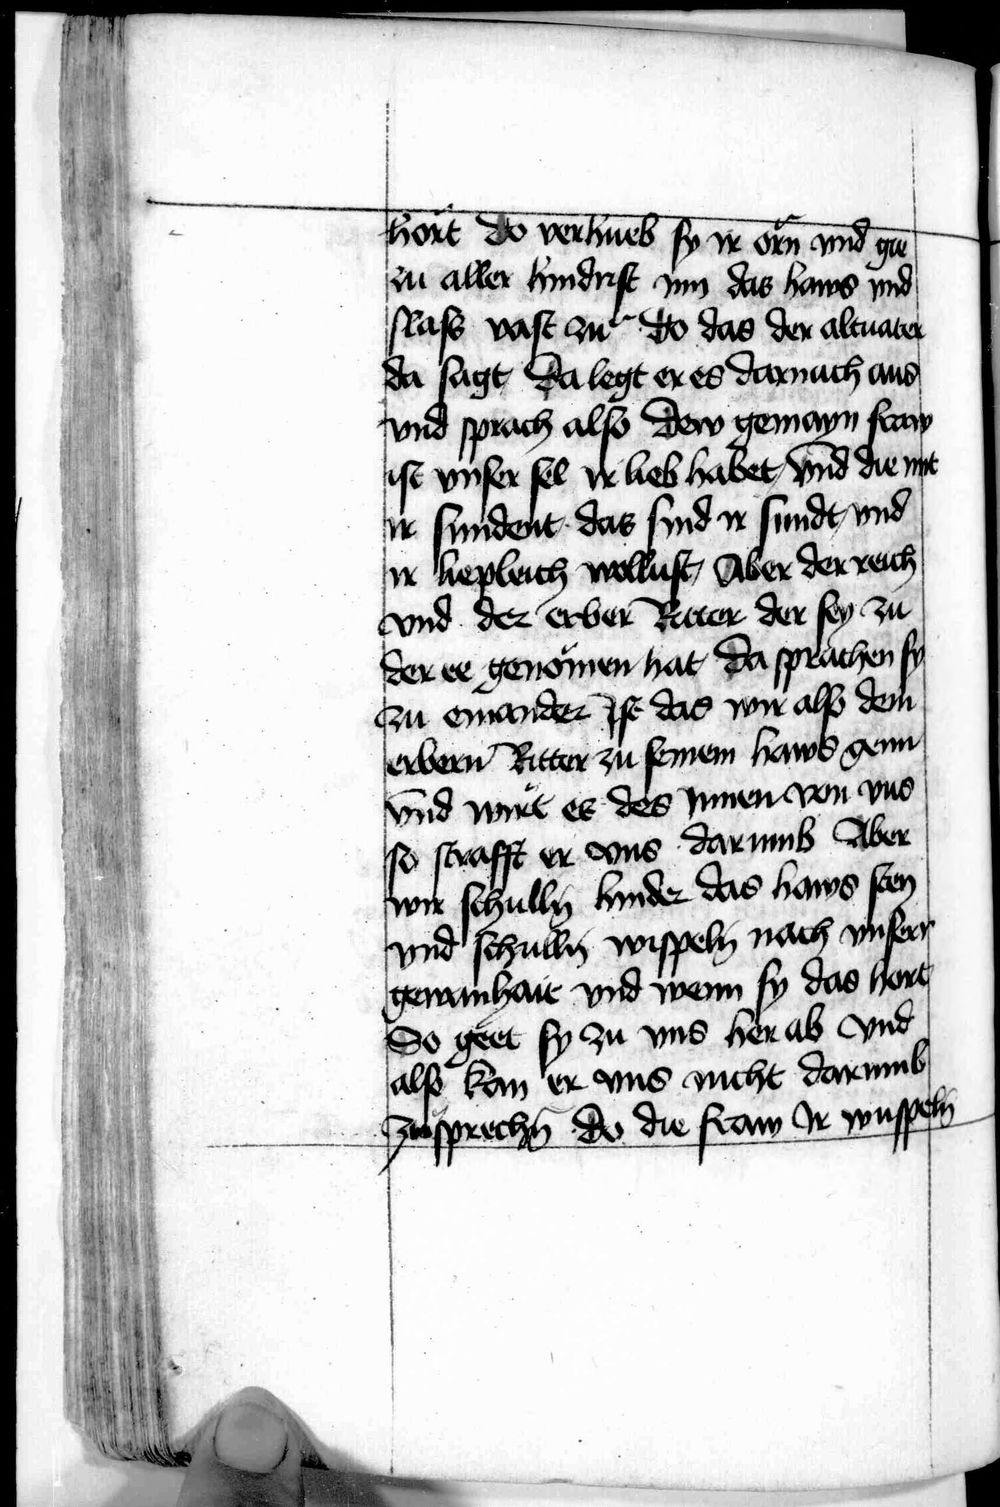 hort do verhueb sy ir orn vnd gie
zu aller hindrist inn das haws vnd
slass vast zu do das der altuater
da sagt Da legt er es darnach aus
vnd sprach also Dew gemayn fraw
ist vnser sel ir lieb habet / vnd die mit
ir sundent das sind ir sundt / vnd
ir liepleich wollust / Aber der reich
vnd der erber Ritter der sey zu
der ee genomen hat Da sprachen sy
zu einander Ist das wir also dem
erbern Ritter zu seinem haws genn
vnd wirt es des Innen von vns
so strafft er vns darumb Aber
wir schulln hinder das haws sten
vnd schulln wispeln nach vnserr
gewanhait vnd wenn sy das hort
So geet sy zu vns her ab vnd
also kan er vns nicht darumb
zusprechn Do die fraw Ir wuspeln